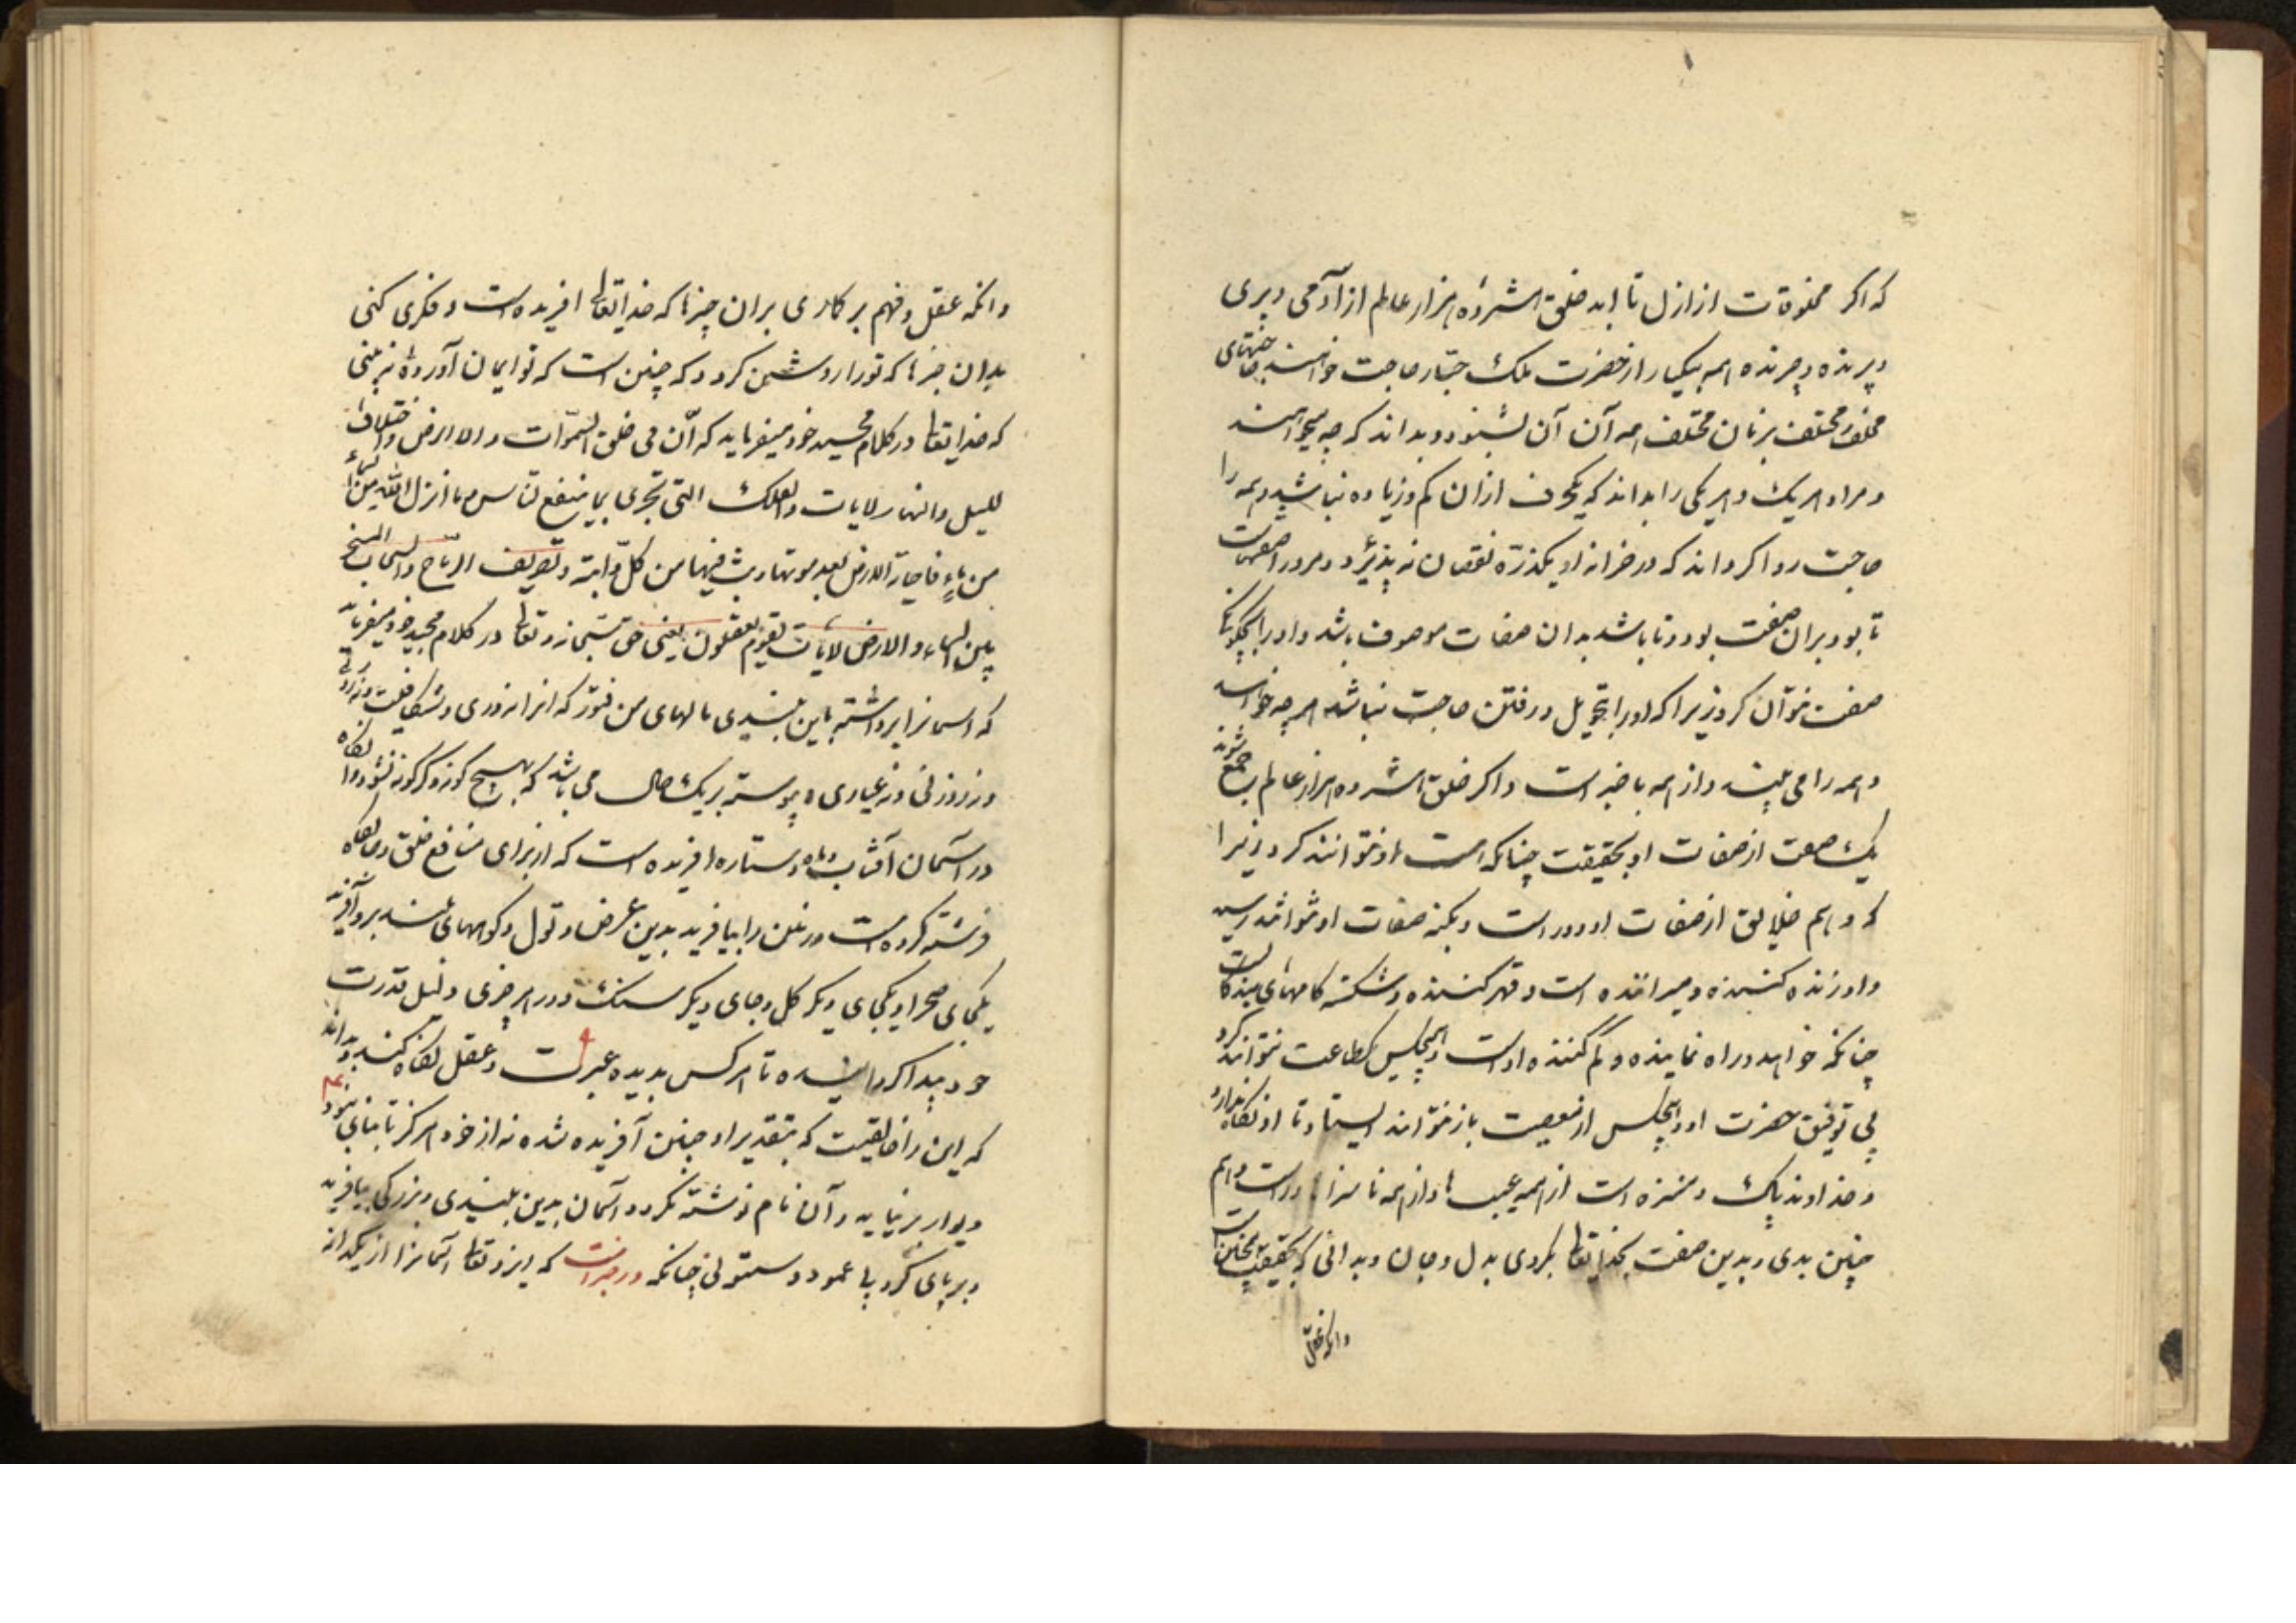 که اکر مخلوقات از ازل تا ابد خلق اشرده هزار عالم از آدمی و پری
و پرنده و چرنده همه بیکبار از حضرت ملک جبار حاجت خواهند حاجتهای
مختلف بزبان مختلف همه آن آن بشنود و بداند که چه میخواهند
و مراد هر یک و هر یکی را بداند که یکحرف ازان کم و زیاده نباشد و همه را
حاجت روا کرداند که در خزانه او یکذره نقصان نه پذیرد و مرور اصفهات
تا بود بران صفت بود و تا باشد بدان صفات موصوف باشد و او را بچکونکی
صفت نتوان کرد زیرا که او را بتحویل و رفتن حاجت نباشد هر چه خواهد
و همه را می بیند و از همه باخبر است و اکر خلق اشرده هزار عالم جمع شوند
یک صفت از صفات او بحقیقت چنانکه هست او نتوانند کرد زیرا
که وهم خلایق از صفات او دور است و بکنه صفات او نتوانند رسید
و او زنده کننده و میراننده است و قهر کننده و شکننده کامهای بندکانست
چنانکه خواهد و راه نماینده و کم کننده اوست و هیچکس طاعت نتواند کرد
بی توفیق حضرت او و هیچکس از معصیت باز نتواند ایستاد تا او نکاه ندارد
و خداوند پاک و منزه است از همه عیبها و از همه ناسزا دور است و هم
چنین بدی و بدین صفت بخدایتعالی بکروی بدل و جان و بدانی که بحقیقت همچنین است
وانکه عقل
وانکه عقل و فهم بر کاری بران چیزها که خدایتعالی افریده است و فکری کنی
بدان چیزها که تو را روشن کردد که چنین است که تو ایمان آورده نه بینی
که خدایتعالی در کلام مجید خود میفرماید که ان فی خلق السموات والارض واختلاف
اللیل والنهار لایات والفلک التی تجری بما ینفع الناس وما انزل الله من السماء
من ماء فاحیا به الارض بعد موتها وبث فیها من کل دابة وتصریف الریاح والسحاب المسخر
بین السماء والارض لایات لقوم یعقلون یعنی حق سبحانه و تعالی در کلام مجید خود میفرماید
که اسمانرا برداشته باین بلندی سالهای من فتور که انرا نه دری و نه شکافیست
و نه روزنی و نه غباری و پیوسته بریک حال می باشد که هیچ کونه دکرکون نشود و انکاه
در اسمان آفتاب و ماه و ستاره افریده است که از برای منافع خلق و انکاه
فرشته کرده است و زمین را بیافرید بدین عرض و طول و کوههای بلند برو آفرید
یکجای صحرا و یکجای دیکر کل و جای دیکر سنک و در هر چیزی دلیل قدرت
خود پیدا کردانیده تا هر کس بدیده عبرت و عقل نکاه کند و بداند
که این را خالقیست که بتقدیر او چنین آفریده شده نه از خود هرکز تا بنایی نبود
دیوار برنیاید و آن نام نوشته نکردد آسمان بدین بلندی و بزرکی بیافرید
و برپای کرد بی عمود و ستونی چنانکه در خبراست که ایزد تعالی آسمانرا از یکدانه